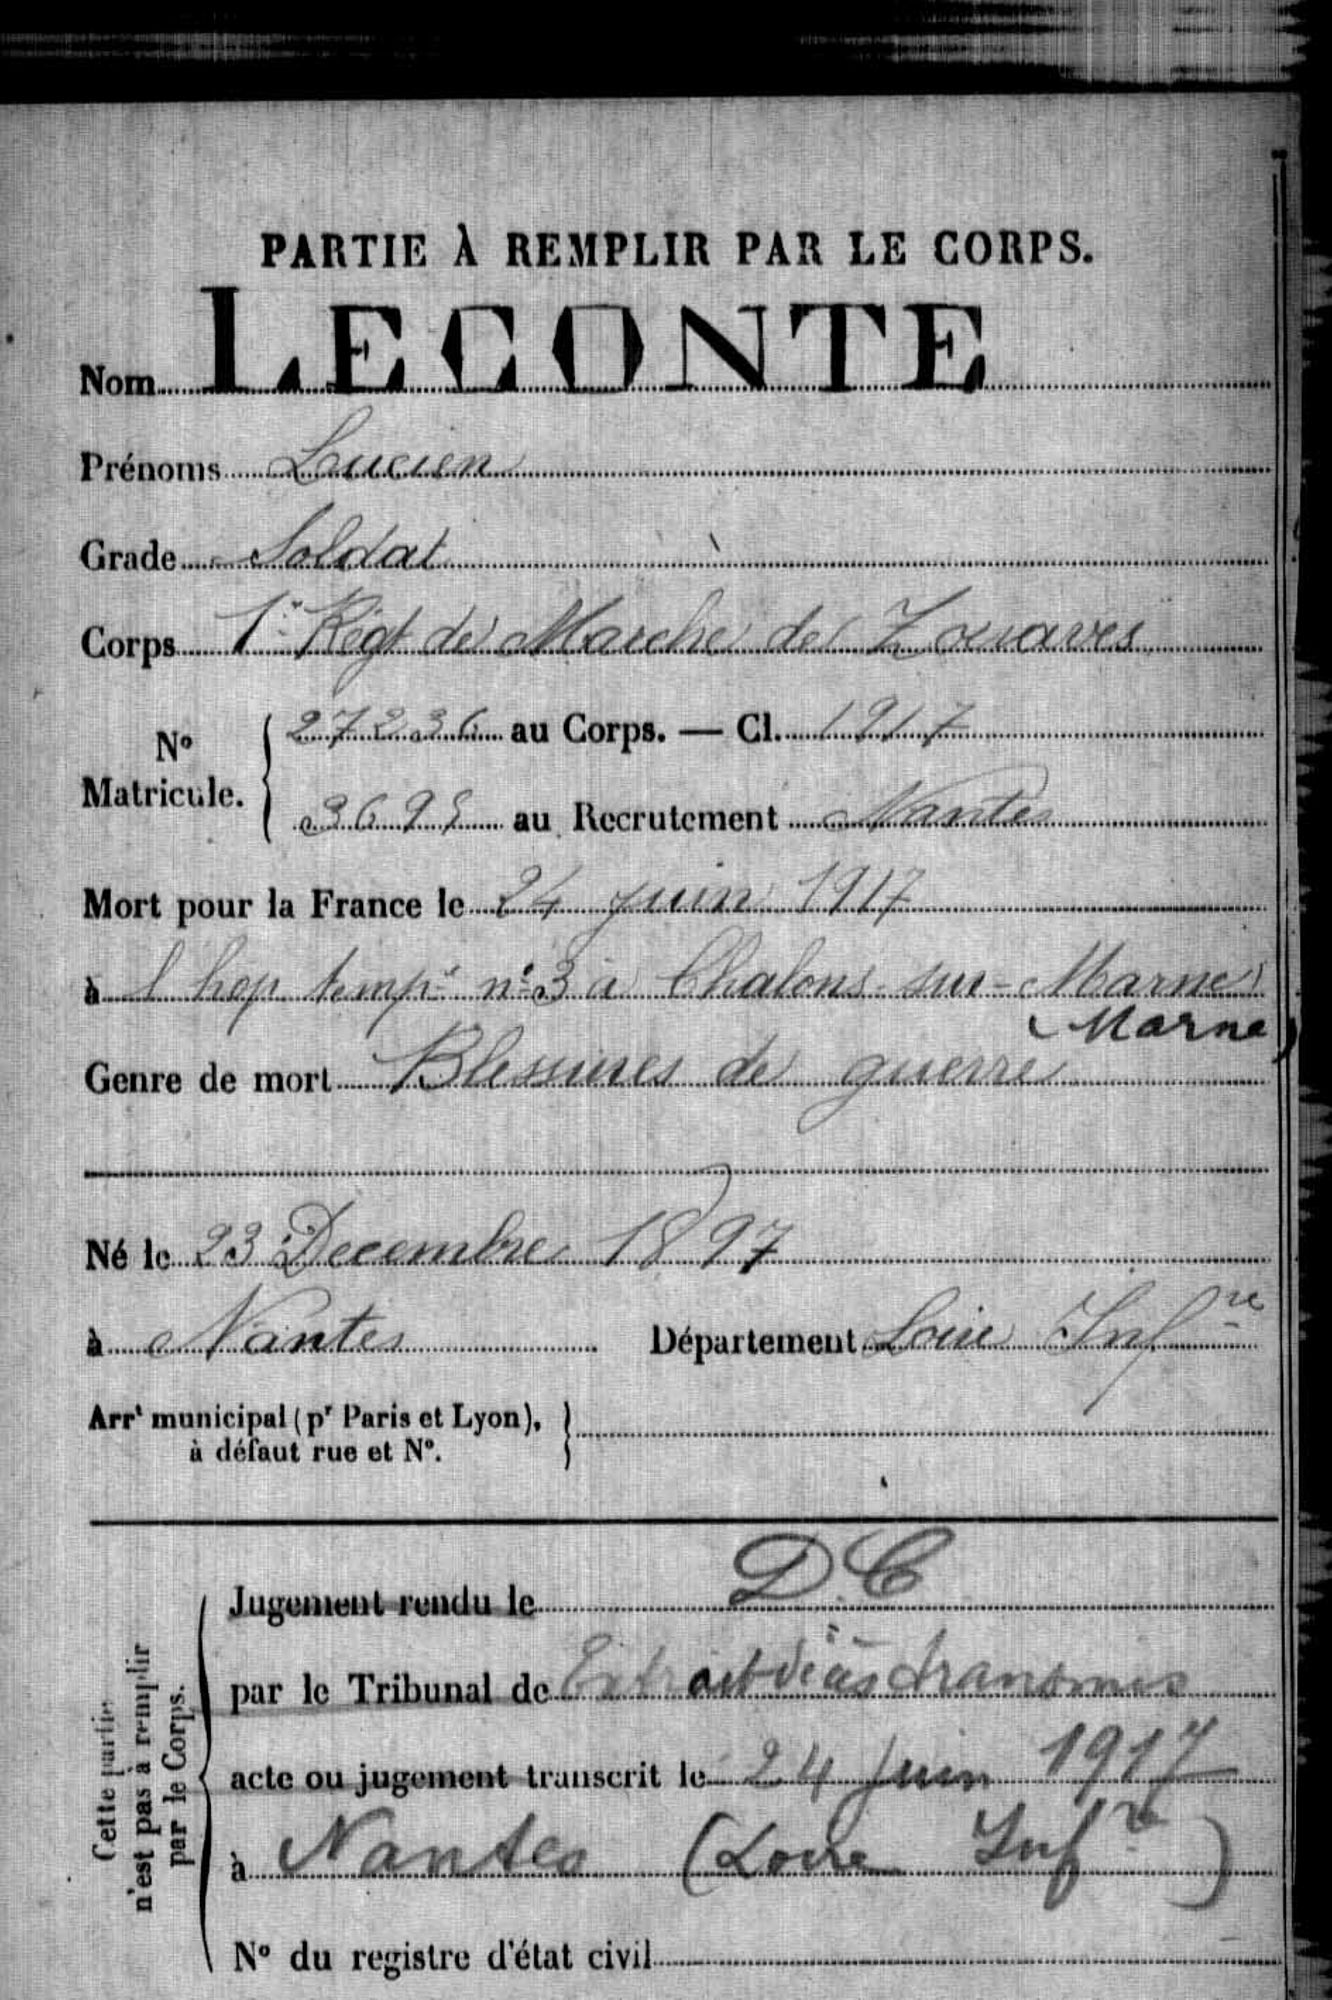 PARTIE À REMPLIR PAR LE CORPS.
Nom LECONTE
Prénoms Lucien
Grade Soldat
Corps 1er Régt de Marche de Zouaves
N° Matricule. 27236 au Corps. — Cl. 1917
3695 au Recrutement Nantes
Mort pour la France le 24 juin 1917
à l'hop tempre n° 3 à Chalons-sur-Marne
(Marne)
Genre de mort Blessures de guerre
Né le 23 Decembre 1897
à Nantes Département Loire Infre
Arrt municipal (pr Paris et Lyon),
à défaut rue et N°.
Cette partie n'est pas à remplir par le Corps.
Jugement rendu le DC
par le Tribunal de Extrait transmis
acte ou jugement transcrit le 24 juin 1917
à Nantes (Loire Infre)
N° du registre d'état civil